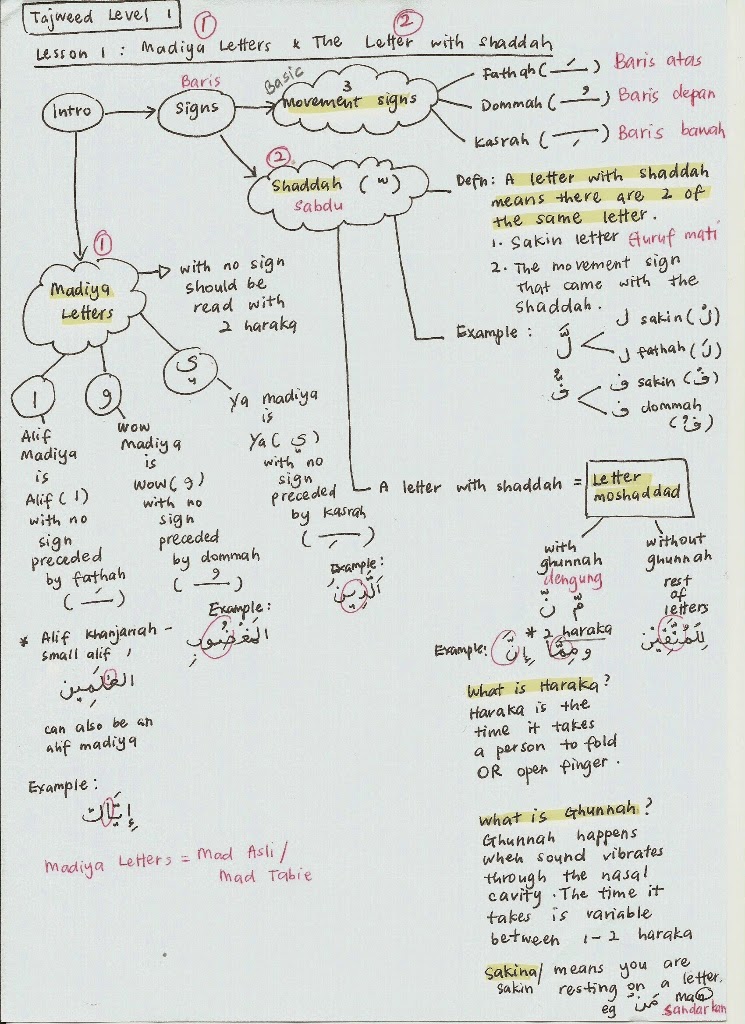 Tajweed Level 1
1
2
Lesson 1 : Madiya Letters & The Letter with shaddah
Intro
Baris
Signs
Basic
3
Movement signs
Fathah ( ـَ ) Baris atas
Dommah ( ـُ ) Baris depan
Kasrah ( ـِ ) Baris bawah
2
Shaddah ( ّ )
Sabdu
Defn: A letter with shaddah
means there are 2 of
the same letter.
1. Sakin letter Huruf mati
2. The movement sign
that came with the
shaddah.
Example :
لَّ
ل sakin (لْ)
ل fathah (لَ)
فُّ
ف sakin (فْ)
ف dommah
(فُ)
1
Madiya
Letters
with no sign
should be
read with
2 haraka
ا
و
ي
Alif
Madiya
is
Alif ( ا )
with no
sign
preceded
by fathah
( ـَ )
wow
Madiya
is
wow( و )
with no
sign
preceded
by dommah
( ـُ )
Example :
المَغْضُوبِ
Ya madiya
is
Ya ( ي )
with no
sign
preceded
by kasrah
( ـِ )
Example:
الَّذِينَ
* Alif khanjariah -
small alif
العٰلَمِين
can also be an
alif madiya
Example :
إِيَّاكَ
Madiya Letters = Mad Asli /
Mad Tabie
A letter with shaddah =
Letter
moshaddad
with
ghunnah
dengung
مّ نّ
* 2 haraka
Example: إِنَّ وَمِمَّا
without
ghunnah
rest
of
letters
لِلمُتَّقِيْن
What is Haraka?
Haraka is the
time it takes
a person to fold
OR open finger.
What is Ghunnah ?
Ghunnah happens
when sound vibrates
through the nasal
cavity. The time it
takes is variable
between 1-2 haraka
Sakina/ means you are
sakin resting on a letter.
eg مَنْ
Sandarkan